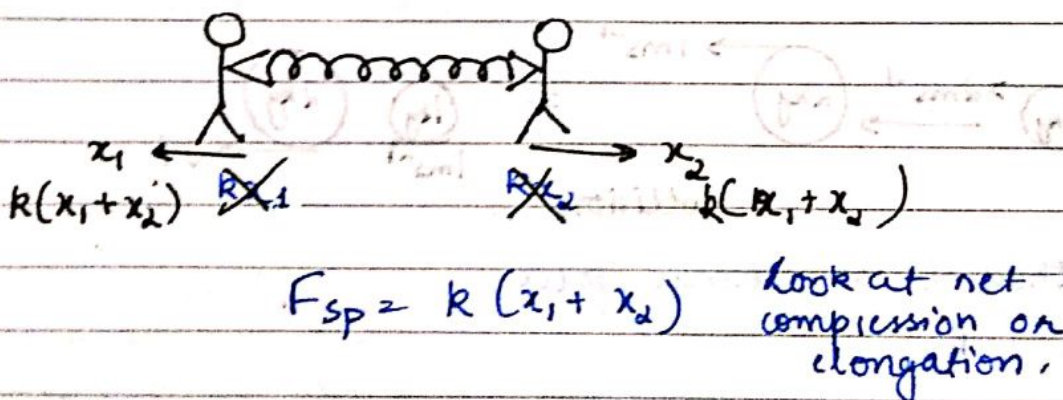 x₁ x₂
k(x₁+x₂) kx₁ kx₂ k(x₁+x₂)
F_sp = k(x₁+x₂) Look at net
compression or
elongation.